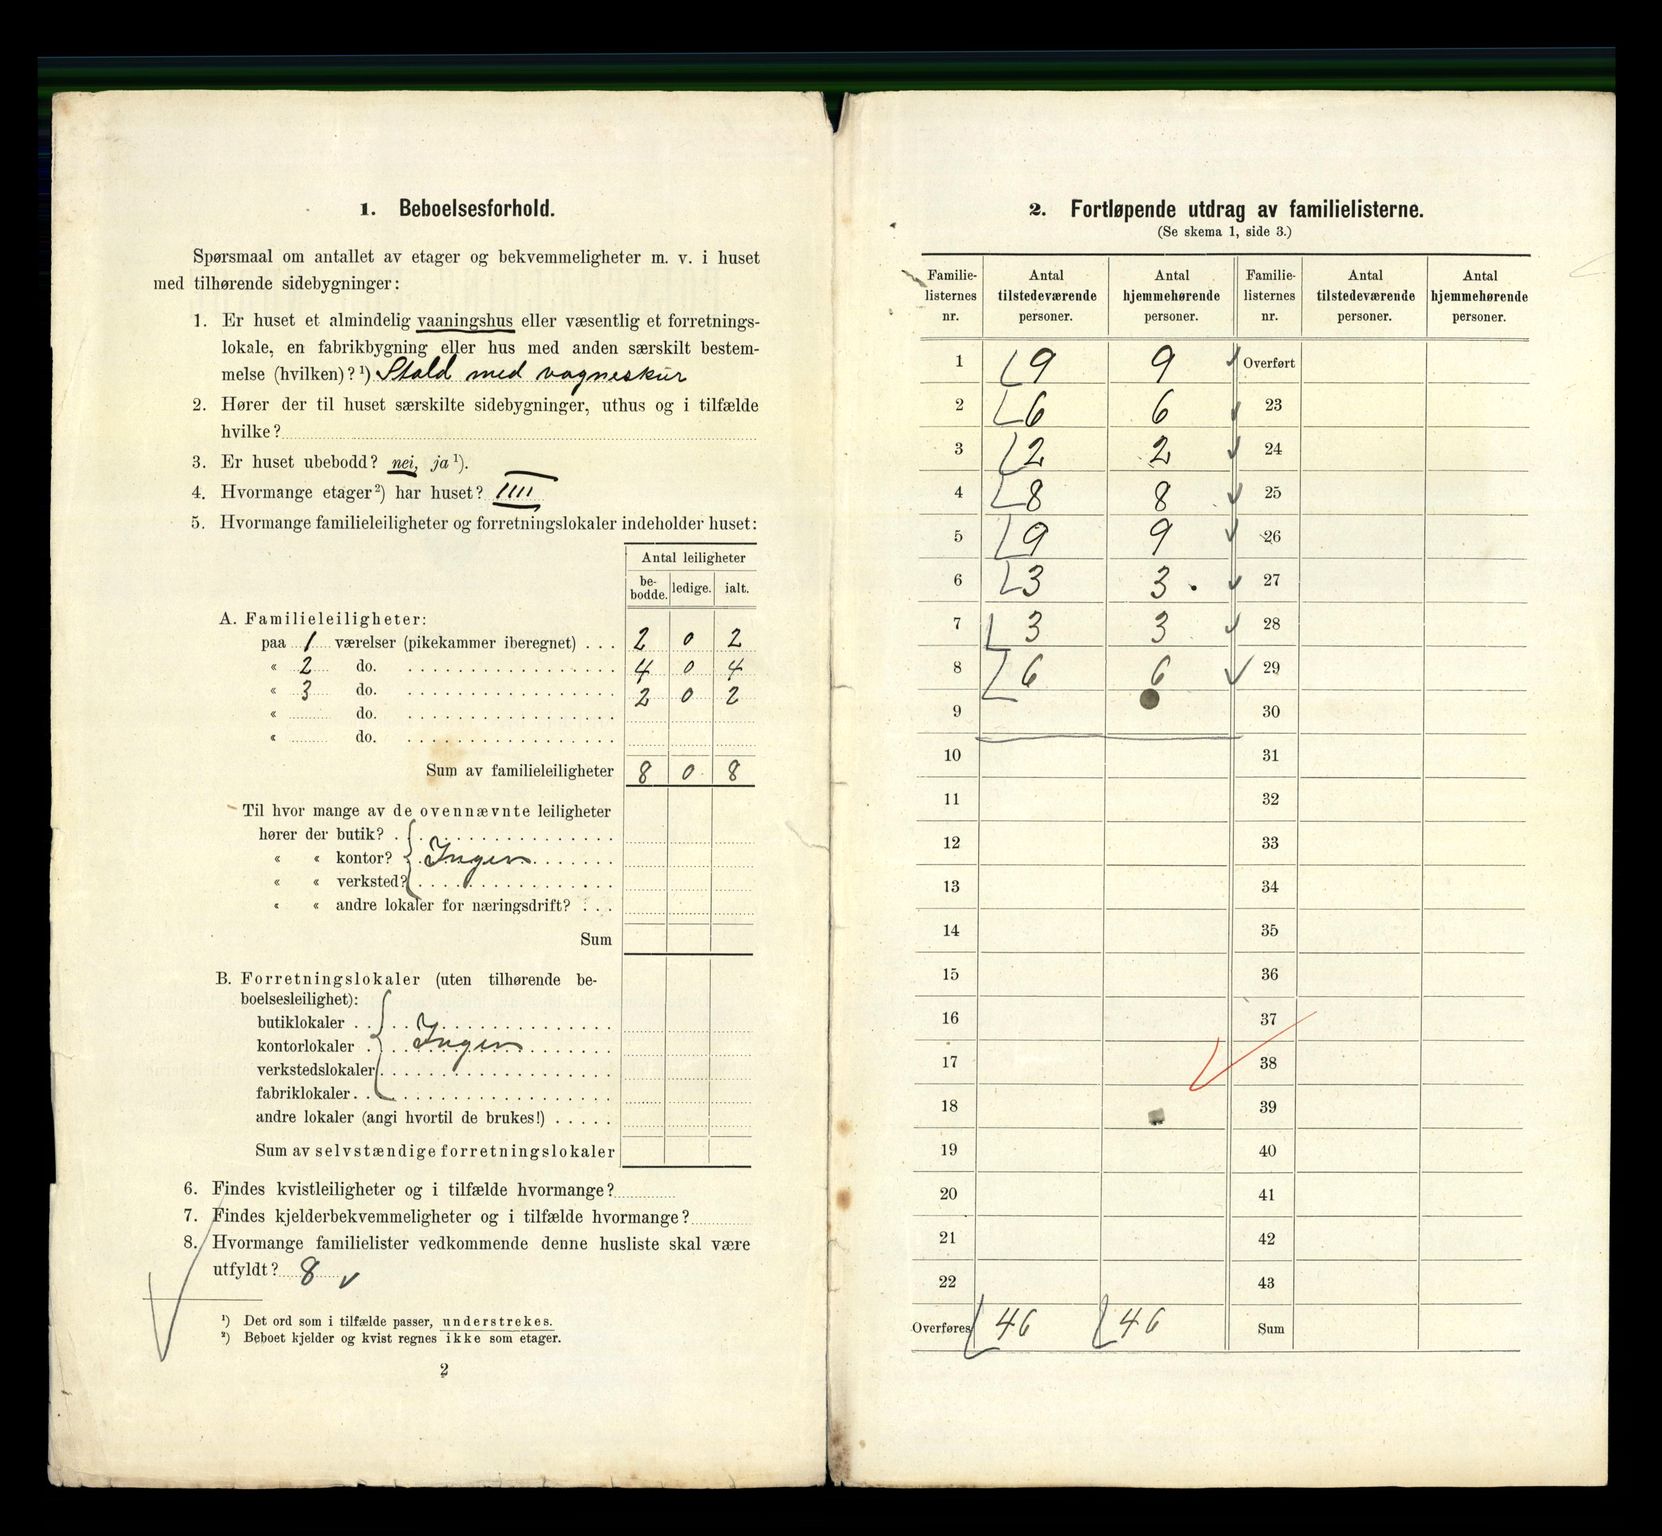 1. Beboelsesforhold.
Spørsmaal om antallet av etager og bekvemmeligheter m. v. i huset
med tilhørende sidebygninger:
1. Er huset et almindelig vaaningshus eller væsentlig et forretnings-
lokale, en fabrikbygning eller hus med anden særskilt bestem-
melse (hvilken)? ¹) Stald med vogneskur
2. Hører der til huset særskilte sidebygninger, uthus og i tilfælde
hvilke?
3. Er huset ubebodd? nei, ja ¹).
4. Hvormange etager ²) har huset? IIII
5. Hvormange familieleiligheter og forretningslokaler indeholder huset:
Antal leiligheter
be-bodde. ledige. ialt.
A. Familieleiligheter:
paa 1 værelser (pikekammer iberegnet) . . . 2 0 2
« 2 do. 4 0 4
« 3 do. 2 0 2
« do.
« do.
Sum av familieleiligheter 8 0 8
Til hvor mange av de ovennævnte leiligheter
hører der butik?
« « kontor? Ingen
« « verksted?
« « andre lokaler for næringsdrift? . . .
Sum
B. Forretningslokaler (uten tilhørende be-
boelsesleilighet):
butiklokaler
kontorlokaler Ingen
verkstedslokaler
fabriklokaler
andre lokaler (angi hvortil de brukes!) . . . . .
Sum av selvstændige forretningslokaler
6. Findes kvistleiligheter og i tilfælde hvormange?
7. Findes kjelderbekvemmeligheter og i tilfælde hvormange?
8. Hvormange familielister vedkommende denne husliste skal være
utfyldt? 8
¹) Det ord som i tilfælde passer, understrekes.
²) Beboet kjelder og kvist regnes ikke som etager.
2
2. Fortløpende utdrag av familielisterne.
(Se skema 1, side 3.)
Familie- Antal Antal Familie- Antal Antal
listernes tilstedeværende hjemmehørende listernes tilstedeværende hjemmehørende
nr. personer. personer. nr. personer. personer.
1 9 9 Overført
2 6 6 23
3 2 2 24
4 8 8 25
5 9 9 26
6 3 3 27
7 3 3 28
8 6 6 29
9 30
10 31
11 32
12 33
13 34
14 35
15 36
16 37
17 38
18 39
19 40
20 41
21 42
22 43
Overføres 46 46 Sum